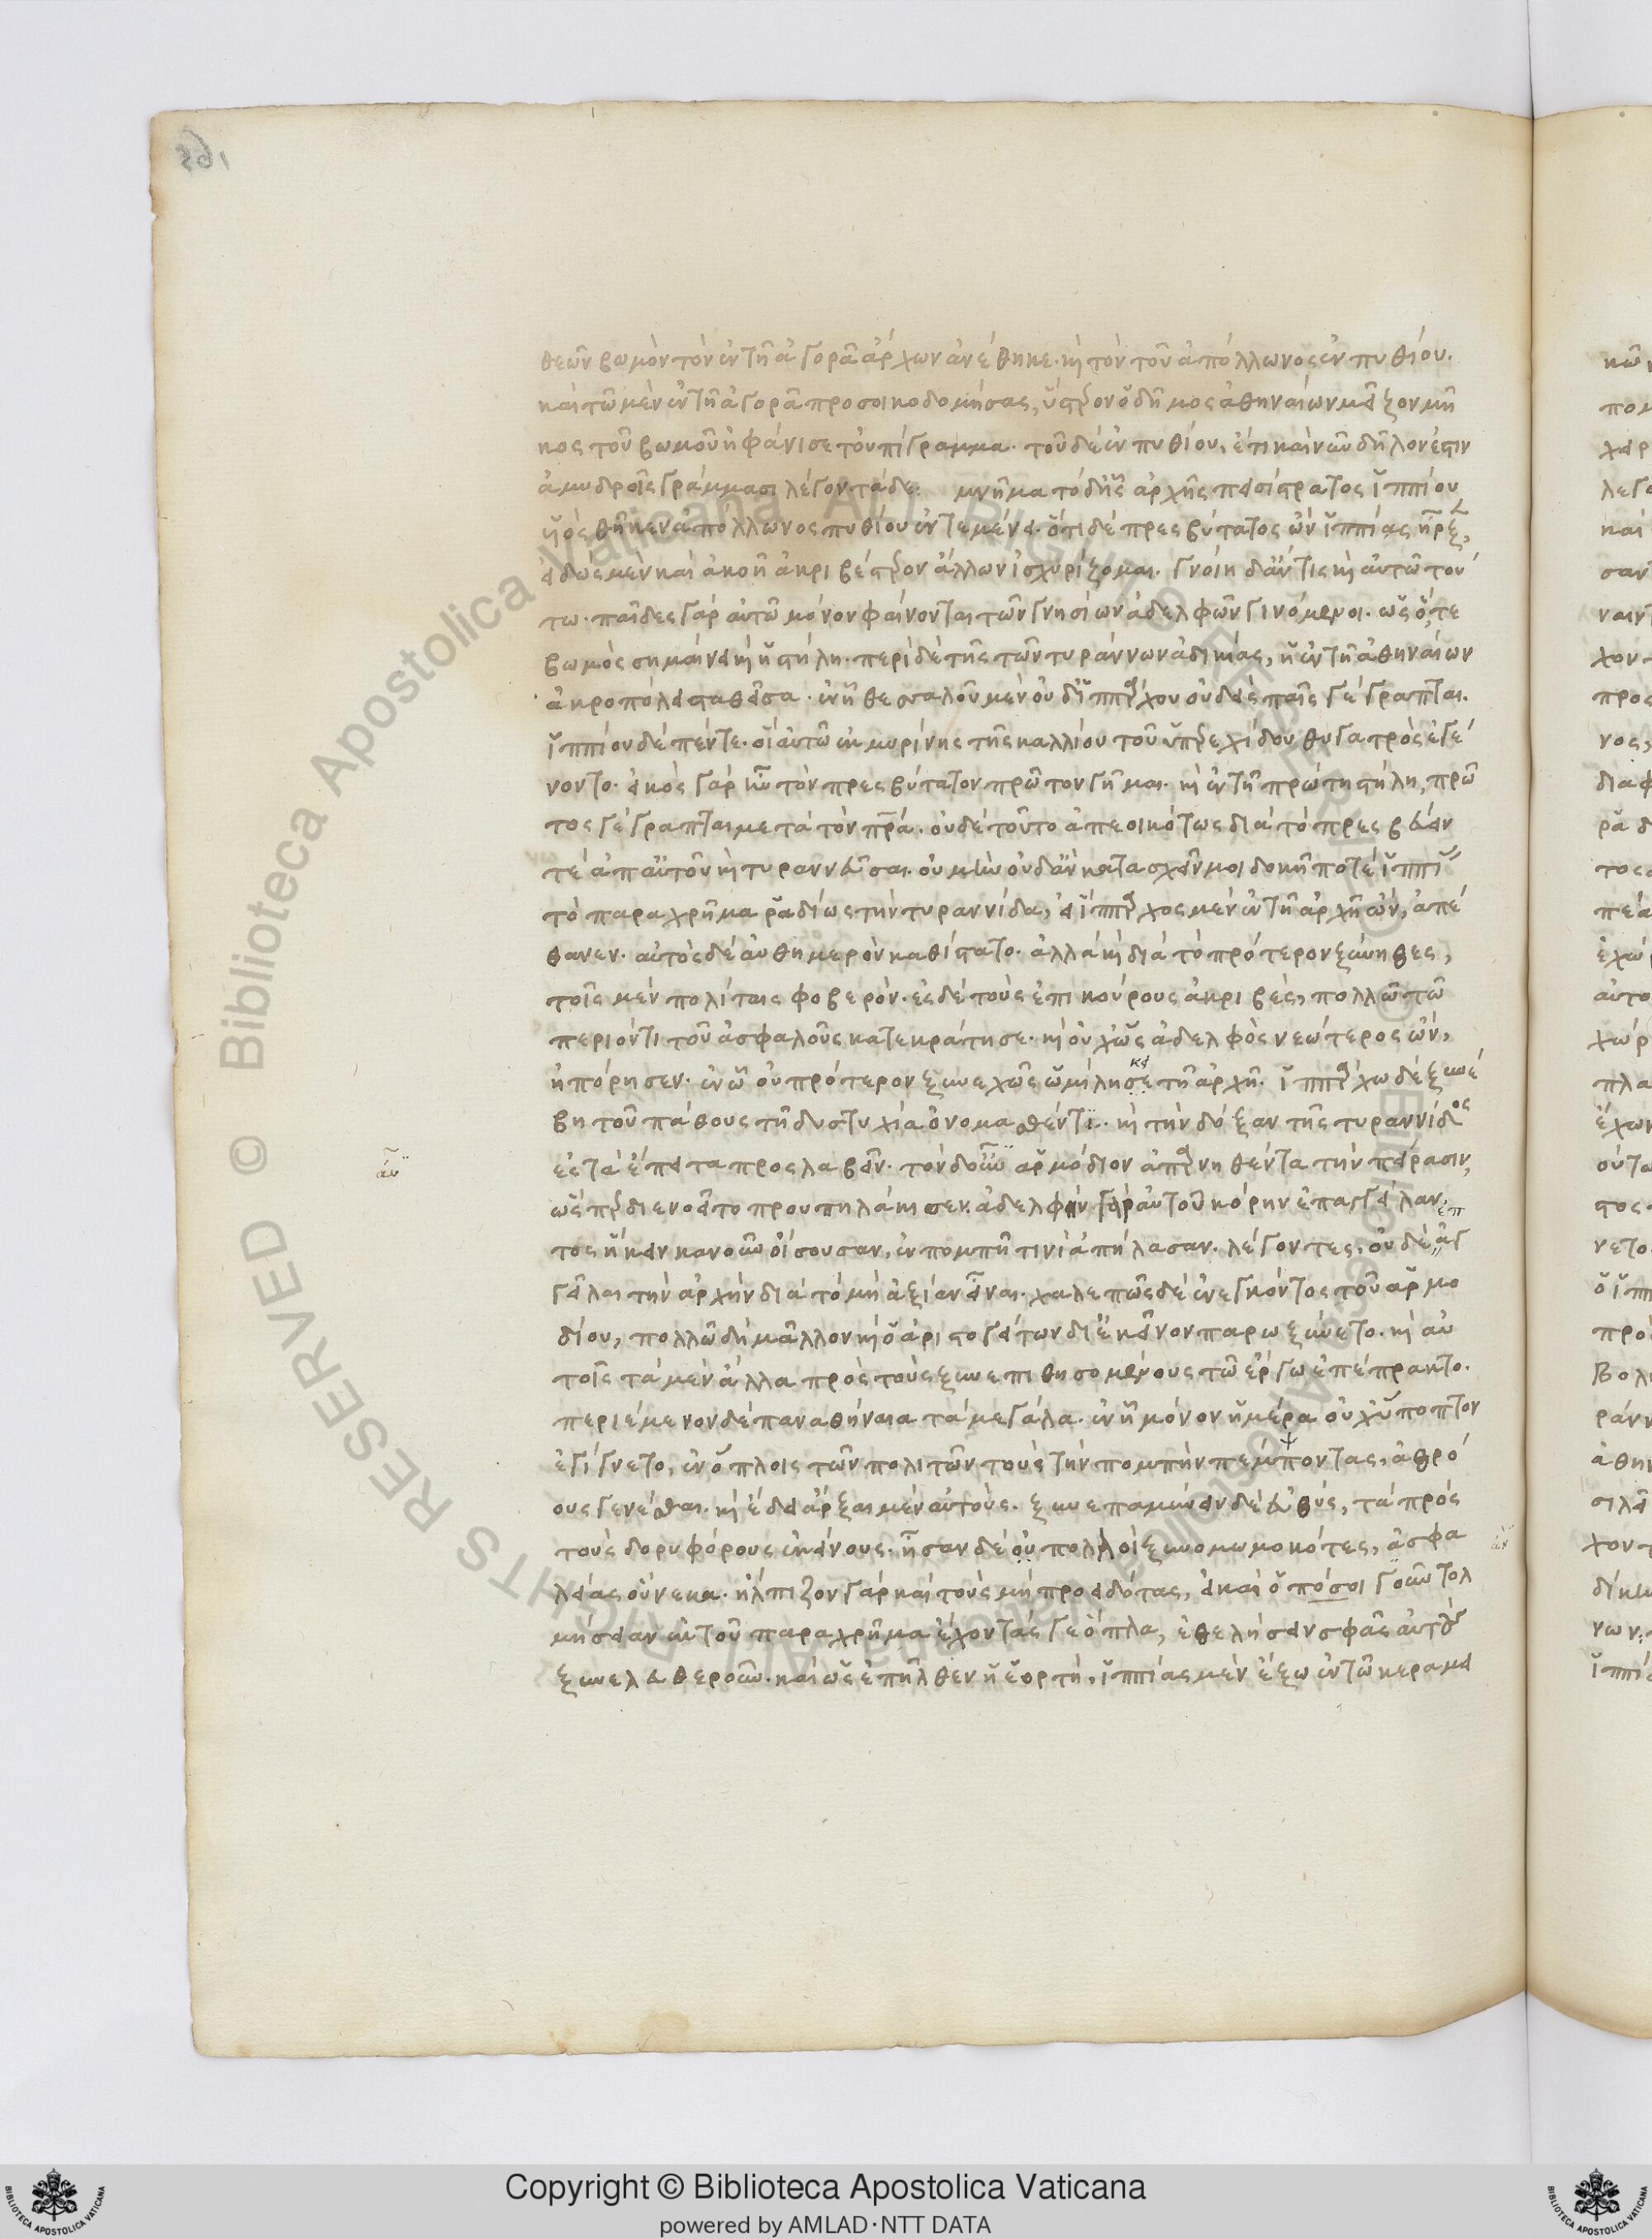 θεῶν βωμὸν τὸν ἐν τῆ ἀγορᾶ ἄρχων ἀνέθηκε. κ̀ τὸν τοῦ ἀπόλλωνος ἐν πυθίου.
καὶ τῶ μὲν ἐν τῆ ἀγορᾶ προσοικοδομήσας, ὕστερον ὁ δῆμος ἀθηναίων μεῖζον μῆ
κος τοῦ βωμοῦ ἠφάνισε τὀυπίγραμμα. τοῦ δὲ ἐν πυθίου, ἔτι καὶ νῦν δῆλον ἐστιν
ἀμυδροῖς γράμμασι λέγον τάδε. μνῆμα τόδ' ἧς ἀρχῆς πεισίστρατος ἱππίου
υἱὸς θῆκεν ἀπόλλωνος πυθίου ἐν τεμένει. ὅτι δὲ πρεσβύτατος ὢν ἱππίας ἦρξεν,
εἰδὼς μὲν καὶ ἀκοῆ ἀκριβέστερον ἄλλων ἰσχυρίζομαι. γνοίη δ' ἄν τις κ̀ αὐτῶ τού
τω. παῖδες γὰρ αὐτῶ μόνον φαίνονται τῶν γνησίων ἀδελφῶν γινόμενοι. ὡς ὅ τε
βωμὸς σημαίνει κ̀ ἡ στήλη. περὶ δὲ τῆς τῶν τυράννων ἀδικίας, ἡ ἐν τῆ ἀθηναίων
ἀκροπόλει σταθεῖσα. ἐν ἧ θεσσαλοῦ μὲν οὐδ' ἱππάρχου οὐδεὶς παῖς γέγραπται.
ἱππίου δὲ πέντε. οἳ αὐτῶ ἐκ μυρίνης τῆς καλλίου τοῦ ὑπερεχίδου θυγατρὸς ἐγέ
νοντο. εἰκὸς γὰρ ἦν τὸν πρεσβύτατον πρῶτον γῆμαι. κ̀ ἐν τῆ πρώτη στήλη, πρῶ
τος γέγραπται μετὰ τὸν πρ̅α. οὐδὲ τοῦτο ἀπεοικότως διὰ τὸ πρεσβεύειν
τέ ἀπ' αὐτοῦ κ̀ τυραννεῦσαι. οὐ μὴν οὐδ' ἂν κατασχεῖν μοι δοκῆ ποτὲ ἱππίας
τὸ παραχρῆμα ῥαδίως τὴν τυραννίδα, εἰ ἵππαρχος μὲν ἐν τῆ ἀρχῆ ὤν, ἀπέ
θανεν. αὐτὸς δὲ αὐθημερὸν καθίστατο. ἀλλὰ κ̀ διὰ τὸ πρότερον ξύνηθες,
τοῖς μὲν πολίταις φοβερόν. ἐς δὲ τοὺς ἐπικούρους ἀκριβὲς, πολλῶ τῶ
περιόντι τοῦ ἀσφαλοῦς κατεκράτησε. κ̀ οὐχ ὡς ἀδελφὸς νεώτερος ὤν,
ἠπόρησεν. ἐν ὧ οὐ πρότερον ξυνεχῶς ὡμίλησε τῆ ἀρχῆ. ἱππάρχω δὲ ξυνέ
βη τοῦ πάθους τῆ δυστυχία ὀνομασθέντι. κ̀ τὴν δόξαν τῆς τυραννίδος
ἐς τὰ ἔπειτα προσλαβεῖν. τὸν δ' οὖν ἁρμόδιον ἀπαρνηθέντα τὴν πείρασιν,
ὥσπερ διενοεῖτο προυπηλάκισεν. ἀδελφὴν γὰρ αὐτοῦ κόρην ἐπαγγείλαν
τες ἥκειν κανοῦν οἴσουσαν, ἐν πομπῆ τινὶ ἀπήλασαν. λέγοντες, οὐδὲ ἀγ
γεῖλαι τὴν ἀρχὴν διὰ τὸ μὴ ἀξίαν εἶναι. χαλεπῶς δὲ ἐνεγκόντος τοῦ ἁρμο
δίου, πολλῶ δὴ μᾶλλον κ̀ ὁ ἀριστογείτων δι' ἐκεῖνον παρωξύνετο. κ̀ αὐ
τοῖς τὰ μὲν ἄλλα πρὸς τοὺς ξυνεπιθησομένους τῶ ἔργω ἐπέπρακτο.
περιέμενον δὲ παναθήναια τὰ μεγάλα. ἐν ἧ μόνον ἡμέρα οὐχ ὕποπτον
ἐγίγνετο, ἐν ὅπλοις τῶν πολιτῶν τοὺς τὴν πομπὴν πέμποντας, ἀθρό
ους γενέσθαι. κ̀ ἔδει ἄρξαι μὲν αὐτούς. ξυνεπαμύνειν δὲ εὐθύς, τὰ πρὸς
τοὺς δορυφόρους ἐκείνους. ἦσαν δὲ οὐ πολλοὶ ξυνομωμοκότες, ἀσφα
λείας οὕνεκα. ἤλπιζον γὰρ καὶ τοὺς μὴ προειδότας, εἰ καὶ ὁπόσοι γοῦν τολ
μήσειαν ἐκ τοῦ παραχρῆμα ἔχοντάς γε ὅπλα, ἐθελήσειν σφᾶς αὐτοὺς
ξυνελευθεροῦν. καὶ ὡς ἐπῆλθεν ἡ ἑορτή, ἱππίας μὲν ἔξω ἐν τῶ κεραμει
Copyright © Biblioteca Apostolica Vaticana
powered by AMLAD·NTT DATA